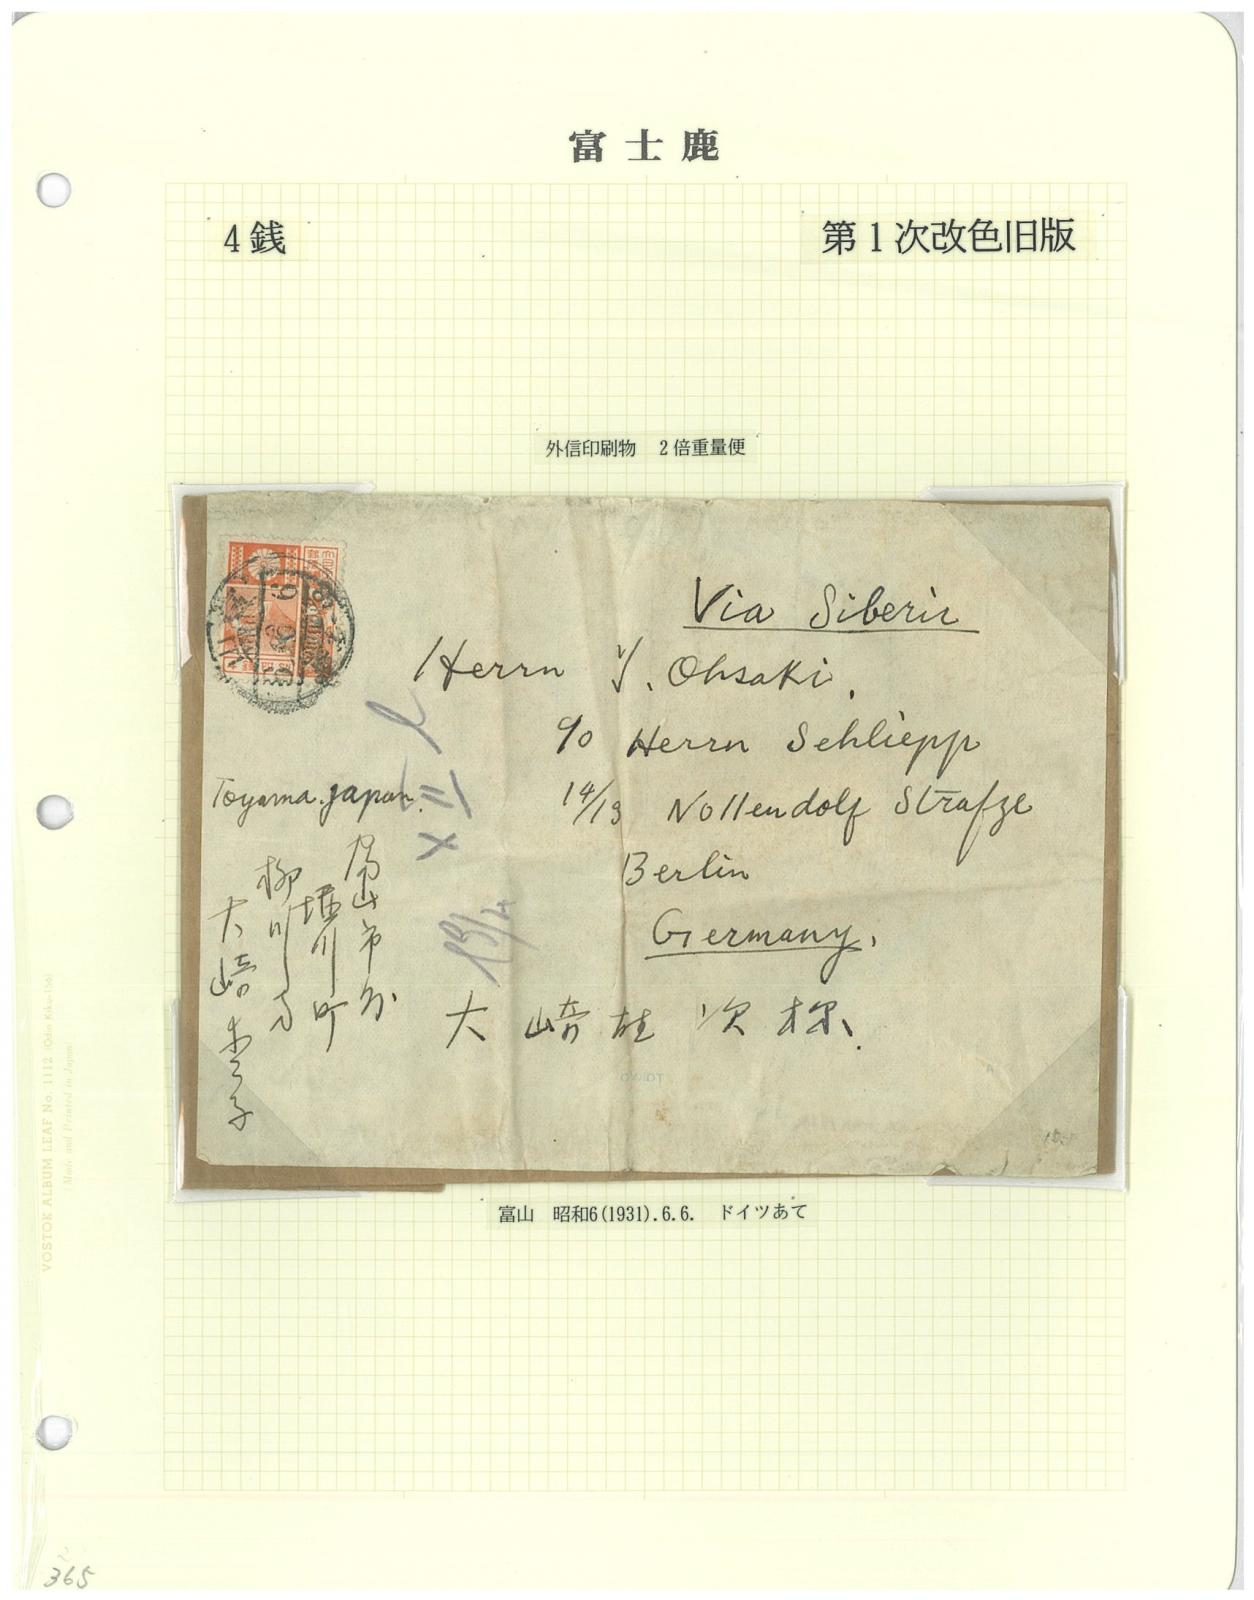 富士鹿
4銭
第1次改色旧版
外信印刷物 2倍重量便
Via Siberia
Herrn Y. Ohsaki.
c/o Herrn Schliepp
14/13 Nollendolf Strafze
Berlin
Germany.
大崎桂次様
Toyama. Japan.
富山市外
堀川町
柳川方
大崎
富山 昭和6(1931).6.6. ドイツあて
VOSTOK ALBUM LEAF No. 1112
Made and Printed in Japan
365